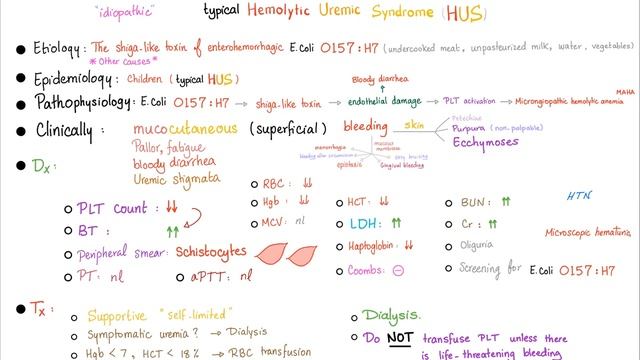 "idiopathic" typical Hemolytic Uremic Syndrome (HUS)
Etiology: The shiga-like toxin of enterohemorrhagic E.Coli O157:H7 (undercooked meat, unpasteurized milk, water, vegetables)
* Other causes *
Epidemiology: Children (typical HUS)
Bloody diarrhea
↑
MAHA
Pathophysiology: E.Coli O157:H7 → shiga-like toxin → endothelial damage → PLT activation → Microngiopathic hemolytic anemia
Clinically: mucocutaneous (superficial) bleeding skin
Petechiae
Purpura (non.palpable)
Ecchymoses
Pallor, fatigue
bloody diarrhea
Uremic stigmata
mucous membrane
menorrhagia
easy bruising
epistaxis
Gingival bleeding
Dx:
PLT count: ↓↓
BT: ↑↑
Peripheral smear: Schistocytes
PT: nl
aPTT: nl
RBC: ↓↓
Hgb: ↓↓
MCV: nl
HCT: ↓↓
LDH: ↑↑
Haptoglobin: ↓↓
Coombs: ⊖
BUN: ↑↑
Cr: ↑↑
Oliguria
Screening for E.Coli O157:H7
HTN
Microscopic hematuria
Tx:
Supportive "self-limited"
Symptomatic uremia? → Dialysis
Hgb < 7, HCT < 18% → RBC transfusion
Dialysis.
Do NOT transfuse PLT unless there
is life-threatening bleeding